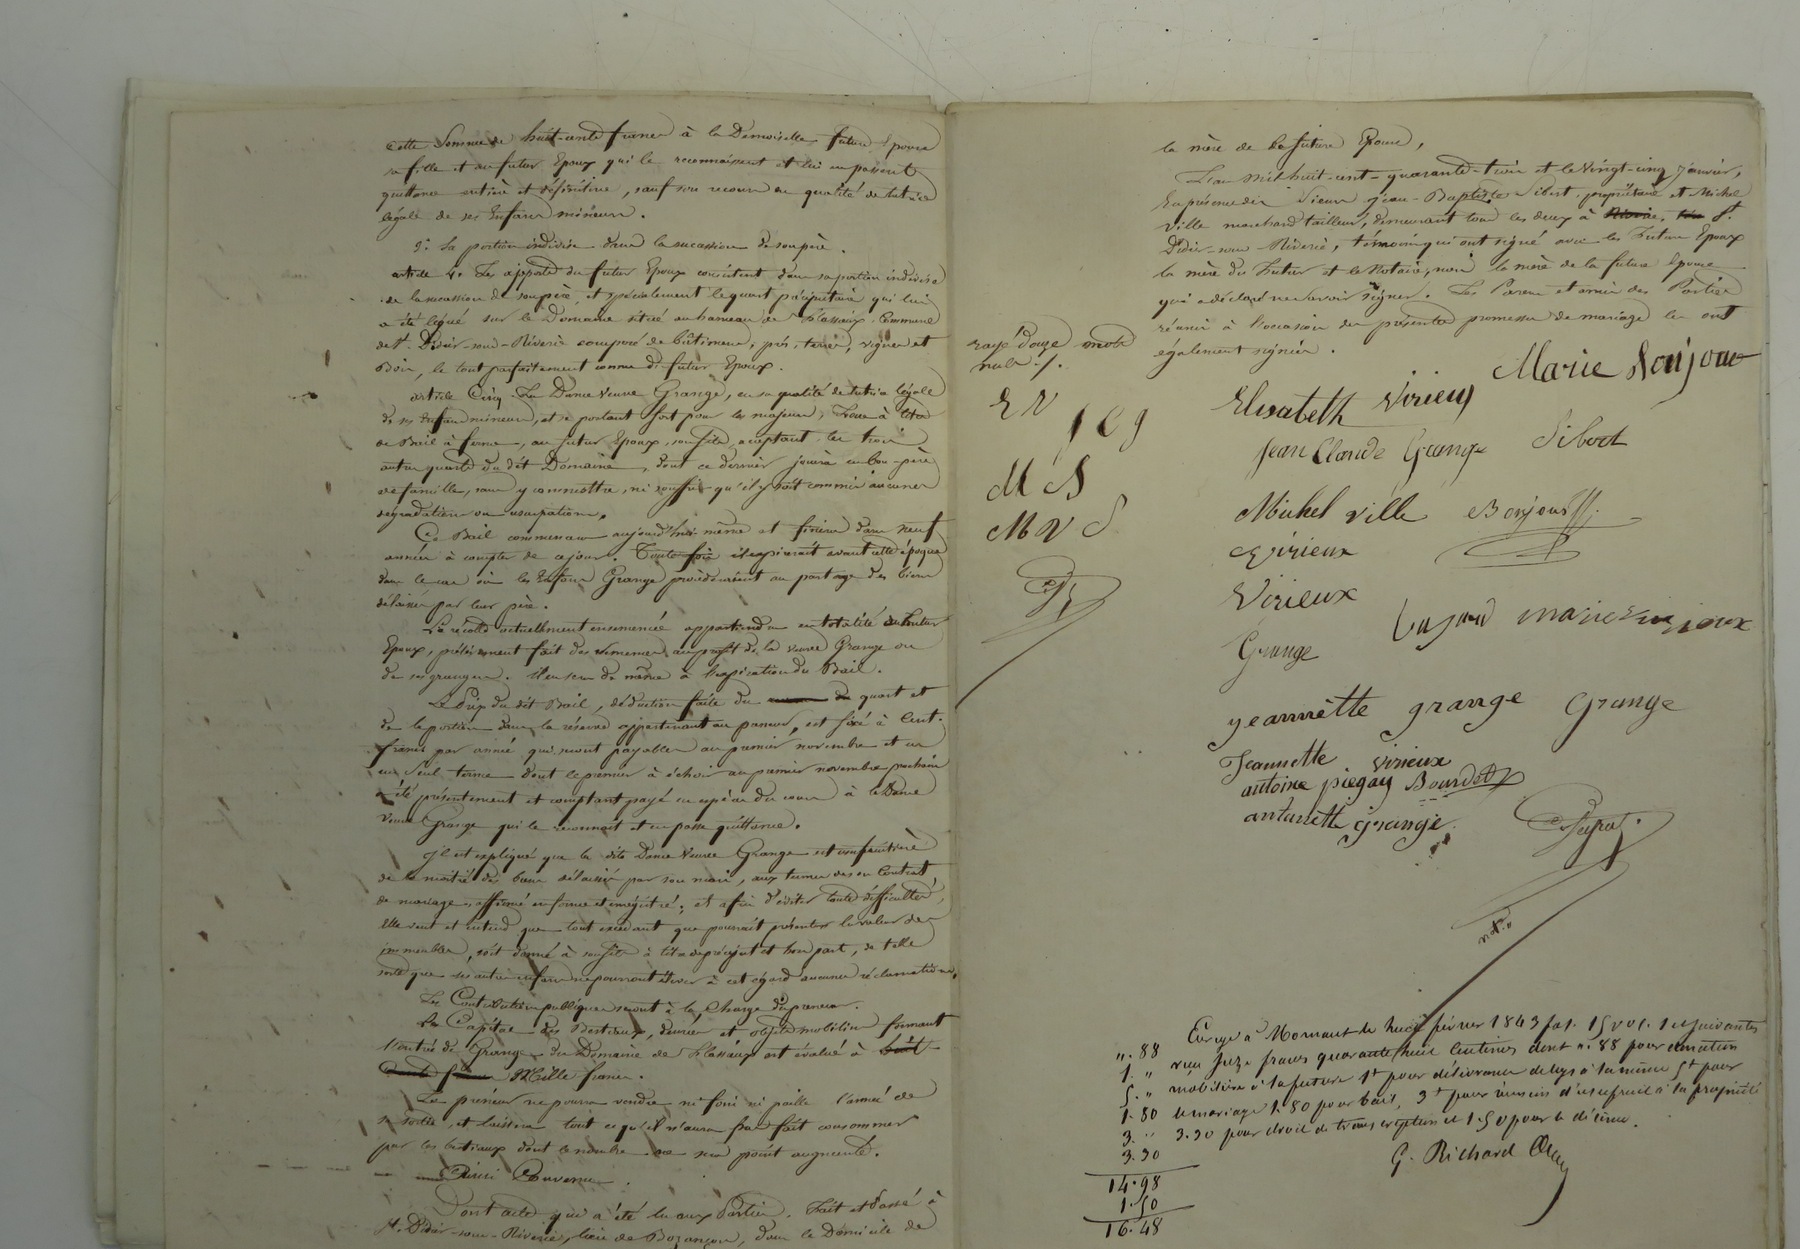 cette Somme de huit-cents francs à la Demoiselle future Epouse
sa fille et au futur Epoux qui le reconnaissent et lui en passent
quittance entière et définitive, sauf son recours en qualité de tutrice
légale de ses Enfans mineurs.
2° Sa portion indivise dans la succession de son père.
article 4. Les apports du futur Epoux consistent dans sa portion indivise
de la succession de son père, et spécialement le quart préciputaire qui lui
a été légué sur le Domaine situé au hameau de Commune
de St. Didier-sous-Riverie composé de bâtimens, prés, terres, vignes et
Bois, le tout parfaitement connu du futur Epoux.
article Cinq. La Dame Veuve Grange, en sa qualité de tutrice légale
de ses Enfans mineurs, et se portant fort pour les majeurs, à titre
de Bail à ferme, au futur Epoux, son fils, acceptant, les trois
autres quarts du dit Domaine, dont ce dernier jouira en bon-père
de famille, sans y commettre, ni souffrir qu'il y soit commis aucunes
dégradations ou usurpations.
Ce Bail commencera aujourd'hui même et finira dans neuf
années à compter de ce jour. Toute fois il expirerait avant cette époque
dans le cas où les Enfans Grange procéderaient au partage des biens
délaissés par leur père.
La récolte actuellement ensemencée appartiendra en totalité au futur
Epoux, prélèvement fait des semences au profit de la veuve Grange ou
de ses granges. il en sera de même à l'expiration du Bail.
Le Prix du dit Bail, déduction faite du quart et
de la portion dans la réserve appartenant au preneur, est fixé à Cent-
francs par année qui seront payables au premier novembre et en
un Seul terme dont le premier à échoir au premier novembre prochain
a été présentement et comptant payé en espèces du cours à la Dame
Veuve Grange qui le reconnait et en passe quittance.
Il est expliqué que la dite Dame Veuve Grange est usufruitière
de la moitié des biens délaissés par son mari, aux termes de son Contrat
de mariage, en forme et enregistré; et afin d'éviter toute difficulté,
elle veut et entend que tout excédant que pourrait présenter la valeur des
immeubles, soit donné à son fils à titre de préciput et hors part, de telle
sorte que ses autres enfans ne pourront élever à cet égard aucune réclamation.
Les Contributions publiques seront à la Charge du preneur.
Le Capital des Bestiaux, denrées et objets mobiliers formant
l'entrée de Grange du Domaine de est évalué à huit
Mille francs.
Le preneur ne pourra vendre ni foin ni paille l'année de
sa sortie, et laissera tout ce qu'il n'aura pas fait consommer
par les bestiaux dont le nombre ne sera point augmenté.
Ainsi Convenu.
Dont acte qui a été lu aux Parties. Fait et Passé à
St. Didier-sous-Riverie, lieu de Bozançon, dans le Domicile de
la mère de la future Epouse,
L'an mil huit-cent-quarante-trois et le Vingt-cinq Janvier,
En présence des Sieurs Jean-Baptiste Sibert, propriétaire et Michel
Ville marchand tailleur, demeurant tous les deux à St.
Didier-sous-Riverie, témoins qui ont signé avec les Futurs Epoux
la mère du Futur et le Notaire, non la mère de la future Epouse
qui a déclaré ne savoir signer. Les Parens et amis des Parties
réunis à l'occasion des présentes promesses de mariage les ont
également signées.
rayé douze mots
nuls
E V
J C G
M S
M V S
Marie Bonjour
Elisabeth Virieux
Jean Claude Grange Sibert
Michel Ville Bonjour
Virieux
Virieux
marie Virieux
Grange
jeannette grange Grange
Jeannette Virieux
antoine piegay Bourdet
antoinette grange
notre
Enregé à Mornant le huit février 1843 fol. 15 vo c. 1 et suivantes
reçu Seize francs quarante huit Centimes dont ". 88 pour donation
mobilière à la future 1f pour délivrance de legs à la même 5f pour
le mariage 1.80 pour bail, 3f pour réunion d'usufruit à la propriété
3.30 pour droit de transcription et 1.50 pour le décime.
G. Richard
". 88
1. "
5. "
1. 80
3. "
3. 30
14. 98
1. 50
16. 48